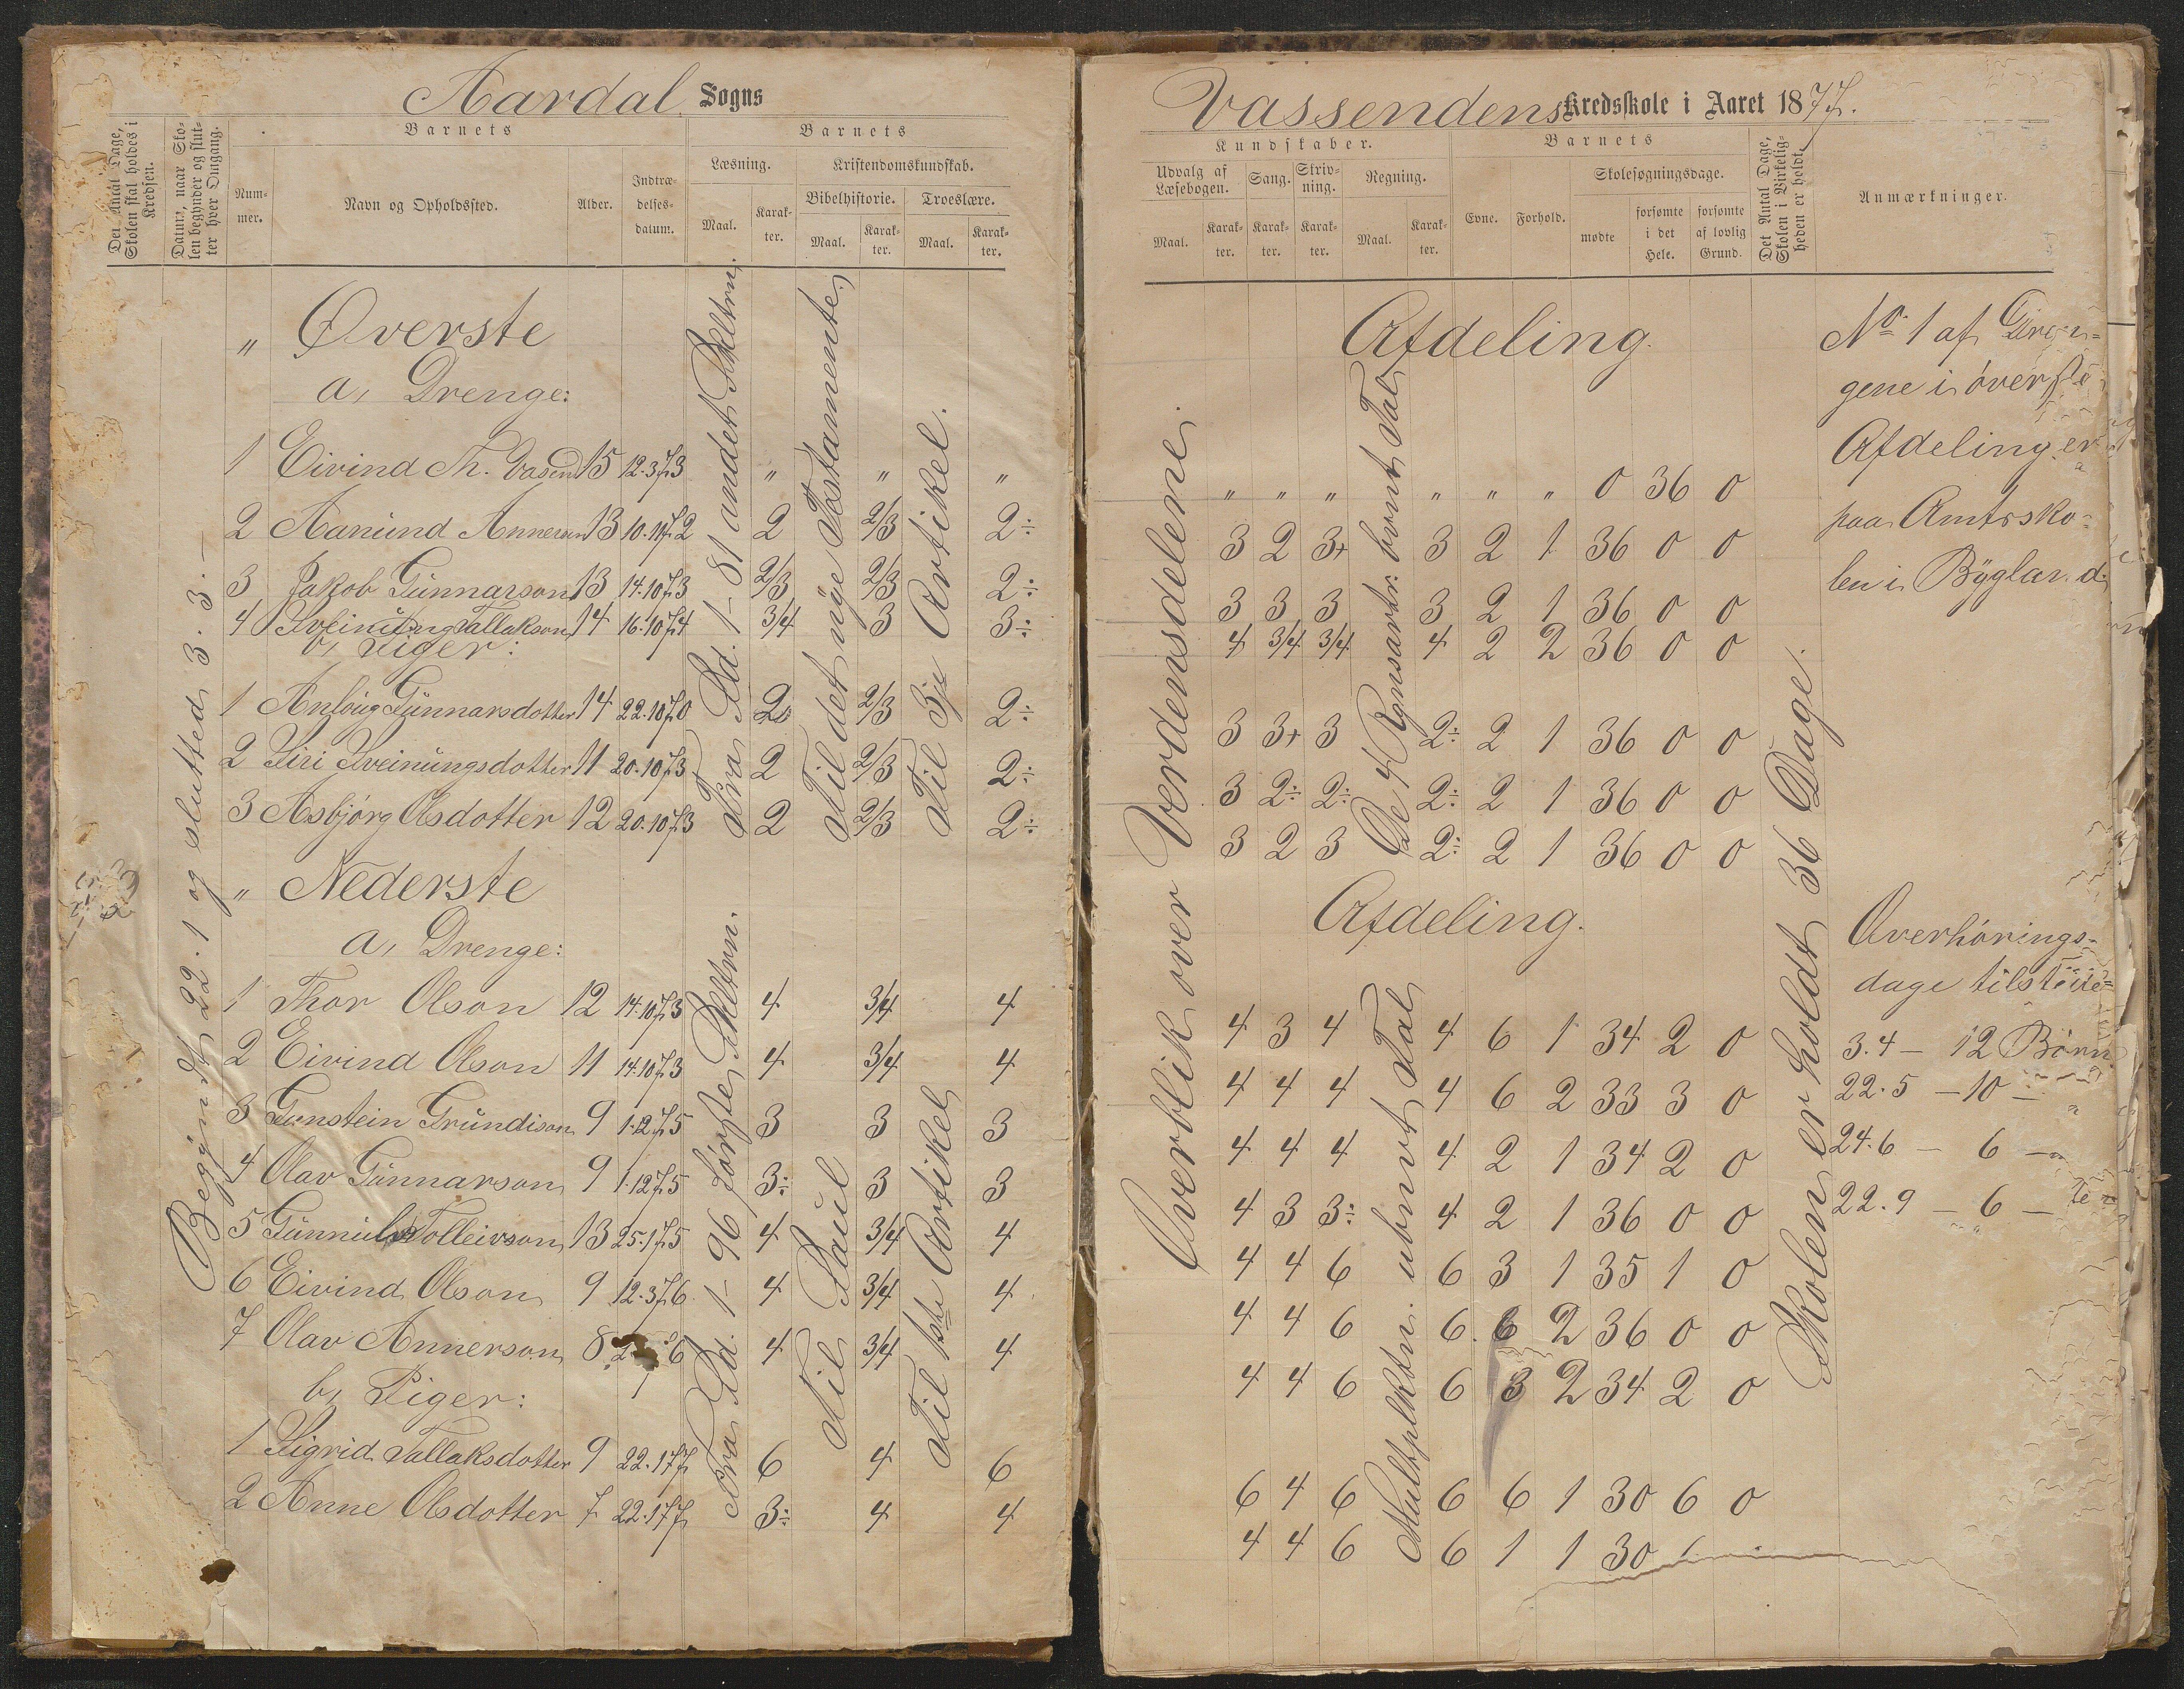 Aardal Sogns
Det Antal Dage, Skolen skal holdes i Kredsen.
Datum, naar Skolen begynder og slutter hver Omgang.
Barnets
Nummer.
Navn og Opholdssted.
Alder.
Indtrædelses-datum.
Barnets
Læsning.
Maal.
Karakter.
Kristendomskundskab.
Bibelhistorie.
Maal.
Karakter.
Troeslære.
Maal.
Karakter.
Begyndt 22.1 og slutted 3.3.—
" Øverste
a, Drenge:
1 Eivind Th. Vasend 15 12.3.73 " " "
2 Aanund Annerson 13 10.11.72 2 2/3 2÷
3 Jakob Gunnarson 13 14.10.73 2/3 2/3 2÷
4 Sveinung Tallakson 14 16.10.74 3/4 3 3÷
b, Piger:
1 Anlaug Gunnarsdotter 14 22.10.70 2 2/3 2÷
2 Siri Sveinungsdotter 11 20.10.73 2 2/3 2÷
3 Asbjørg Olsdotter 12 20.10.73 2 2/3 2÷
Fra Sd. 1-81 andet Skiltrin.
Til det nye Testamente
Til 3je Artikel.
" Nederste
a, Drenge:
1 Thor Olson 12 14.10.73 4 3/4 4
2 Eivind Olson 11 14.10.73 4 3/4 4
3 Gunstein Grundison 9 1.12.75 3 3 3
4 Olav Gunnarson 9 1.12.75 3÷ 3 3
5 Gunnulv Tolleivson 13 25.1.75 4 3/4 4
6 Eivind Olson 9 12.3.76 4 3/4 4
7 Olav Annerson 8 6 4 3/4 4
b, Piger:
1 Sigrid Tallaksdotter 9 22.1.77 6 4 6
2 Anne Olsdotter 7 22.1.77 3÷ 4 4
Fra Sd. 1-96 første Skiltrin.
Til Saul
Til 1ste Artikel
Vassendens Kredsskole i Aaret 1877.
Kundskaber.
Udvalg af Læsebogen.
Maal.
Karakter.
Sang.
Karakter.
Skrivning.
Karakter.
Regning.
Maal.
Karakter.
Barnets
Evne.
Forhold.
Skolesøgningsdage.
mødte
forsømte i det Hele.
forsømte af lovlig Grund.
Det Antal Dage, Skolen i Virkeligheden er holdt.
Anmærkninger.
Overblik over Verdensdelene.
Afdeling.
" " " " " " 0 36 0
3 2 3+ 3 2 1 36 0 0
3 3 3 3 2 1 36 0 0
4 3/4 3/4 4 2 2 36 0 0
3 3+ 3 2÷ 2 1 36 0 0
3 2÷ 2÷ 2÷ 2 1 36 0 0
3 2 3 2÷ 2 1 36 0 0
De 4 Regnsartr. bvnt Tal
Afdeling.
4 3 4 4 6 1 34 2 0
4 4 4 4 6 2 33 3 0
4 4 4 4 2 1 34 2 0
4 3 3÷ 4 2 1 36 0 0
4 4 6 6 3 1 35 1 0
4 4 6 6 6 2 36 0 0
4 4 6 6 3 2 34 2 0
6 4 6 6 6 1 30 6 0
4 4 6 6 1 1 30
Multplktn. ubnvt Tal
Skolen er holdt 36 Dage.
No. 1 af Dren-
gene i øverste
Afdeling er
paa Amtsko-
len i Bygland.
Overhørings-
dage tilstede
3.4 — 12 Børn
22.5 — 10 —
24.6 — 6 —
22.9 — 6 —